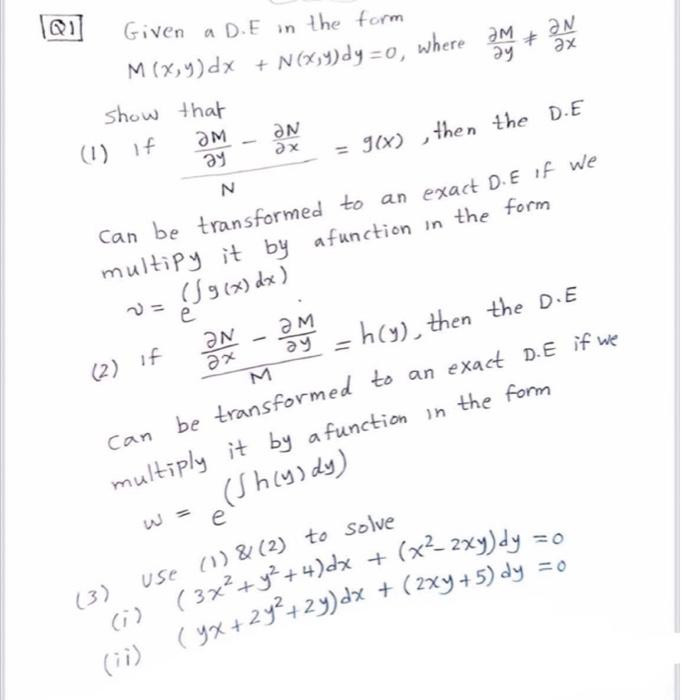 Q1 Given a D.E in the form
M(x,y)dx + N(x,y)dy = 0, where ∂M/∂y ≠ ∂N/∂x
show that
(1) If (∂M/∂y - ∂N/∂x)/N = g(x), then the D.E
Can be transformed to an exact D.E if we
multipy it by afunction in the form
v = e^(∫g(x)dx)
(2) if (∂N/∂x - ∂M/∂y)/M = h(y), then the D.E
Can be transformed to an exact D.E if we
multiply it by afunction in the form
w = e^(∫h(y)dy)
(3) Use (1) & (2) to solve
(i) (3x²+y²+4)dx + (x²-2xy)dy = 0
(ii) (yx+2y²+2y)dx + (2xy+5)dy = 0